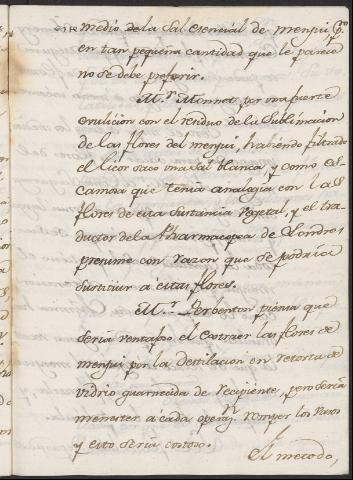 medio de la Sal esencial de menjui pro
en tan pequeña cantidad que le parece
no se debe preferir.
Mr. Monnet por una fuerte
evulicion con el residuo de la Sublimacion
de las flores del menjui, haviendo filtrado
el licor saco una sal blanca, y como es-
camosa que tenia analogia con las
flores de esta Sustancia Vegetal, y el tra-
ductor de la Pharmacopea de Londres
presume con razon que se podria
Sustituir a estas flores.
Mr. piensa que
seria ventajoso el extraer las flores de
menjui por la destilacion en retorta de
vidrio guarnecida de recipiente, pero seria
menester a cada operan. romper los vasos
y esto seria costoso.
El metodo,